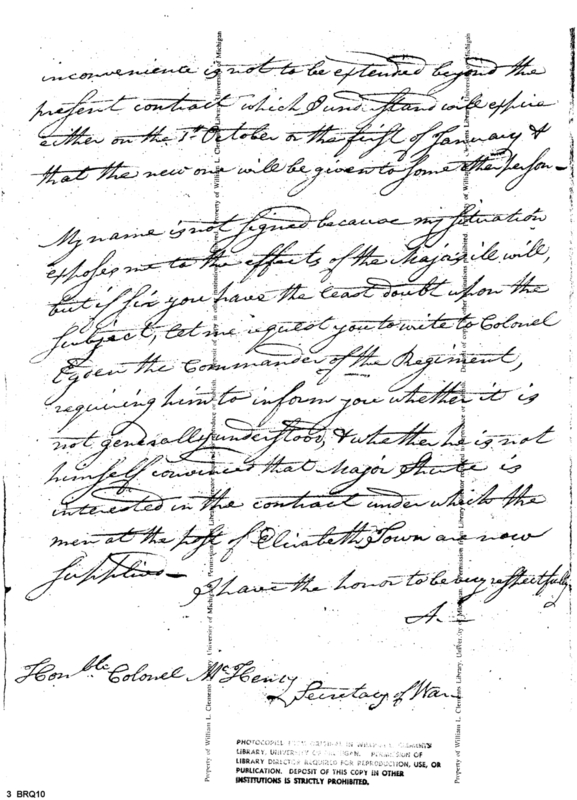 inconvenience is not to be extended beyond the
present contract which I understand will expire
either on the 1st October or the first of January &
that the new one will be given to some other person —
My name is not signed because my situation
exposes me to the effects of the Majors ill will,
but if sir you have the least doubt upon the
subject, let me request you to write to Colonel
Ogden the Commander of the Regiment,
requiring him to inform you whether it is
not generally understood, & whether he is not
himself convinced that Major Shute is
interested in the contract under which the
men at the post of Elizabeth Town are now
supplied —
I have the honor to be very respectfully
A. —
Honble. Colonel McHenry
Secretary of War
PHOTOCOPIED FROM ORIGINAL IN WILLIAM L. CLEMENTS
LIBRARY, UNIVERSITY OF MICHIGAN. PERMISSION OF
LIBRARY DIRECTOR REQUIRED FOR REPRODUCTION, USE, OR
PUBLICATION. DEPOSIT OF THIS COPY IN OTHER
INSTITUTIONS IS STRICTLY PROHIBITED.
3 BRQ10